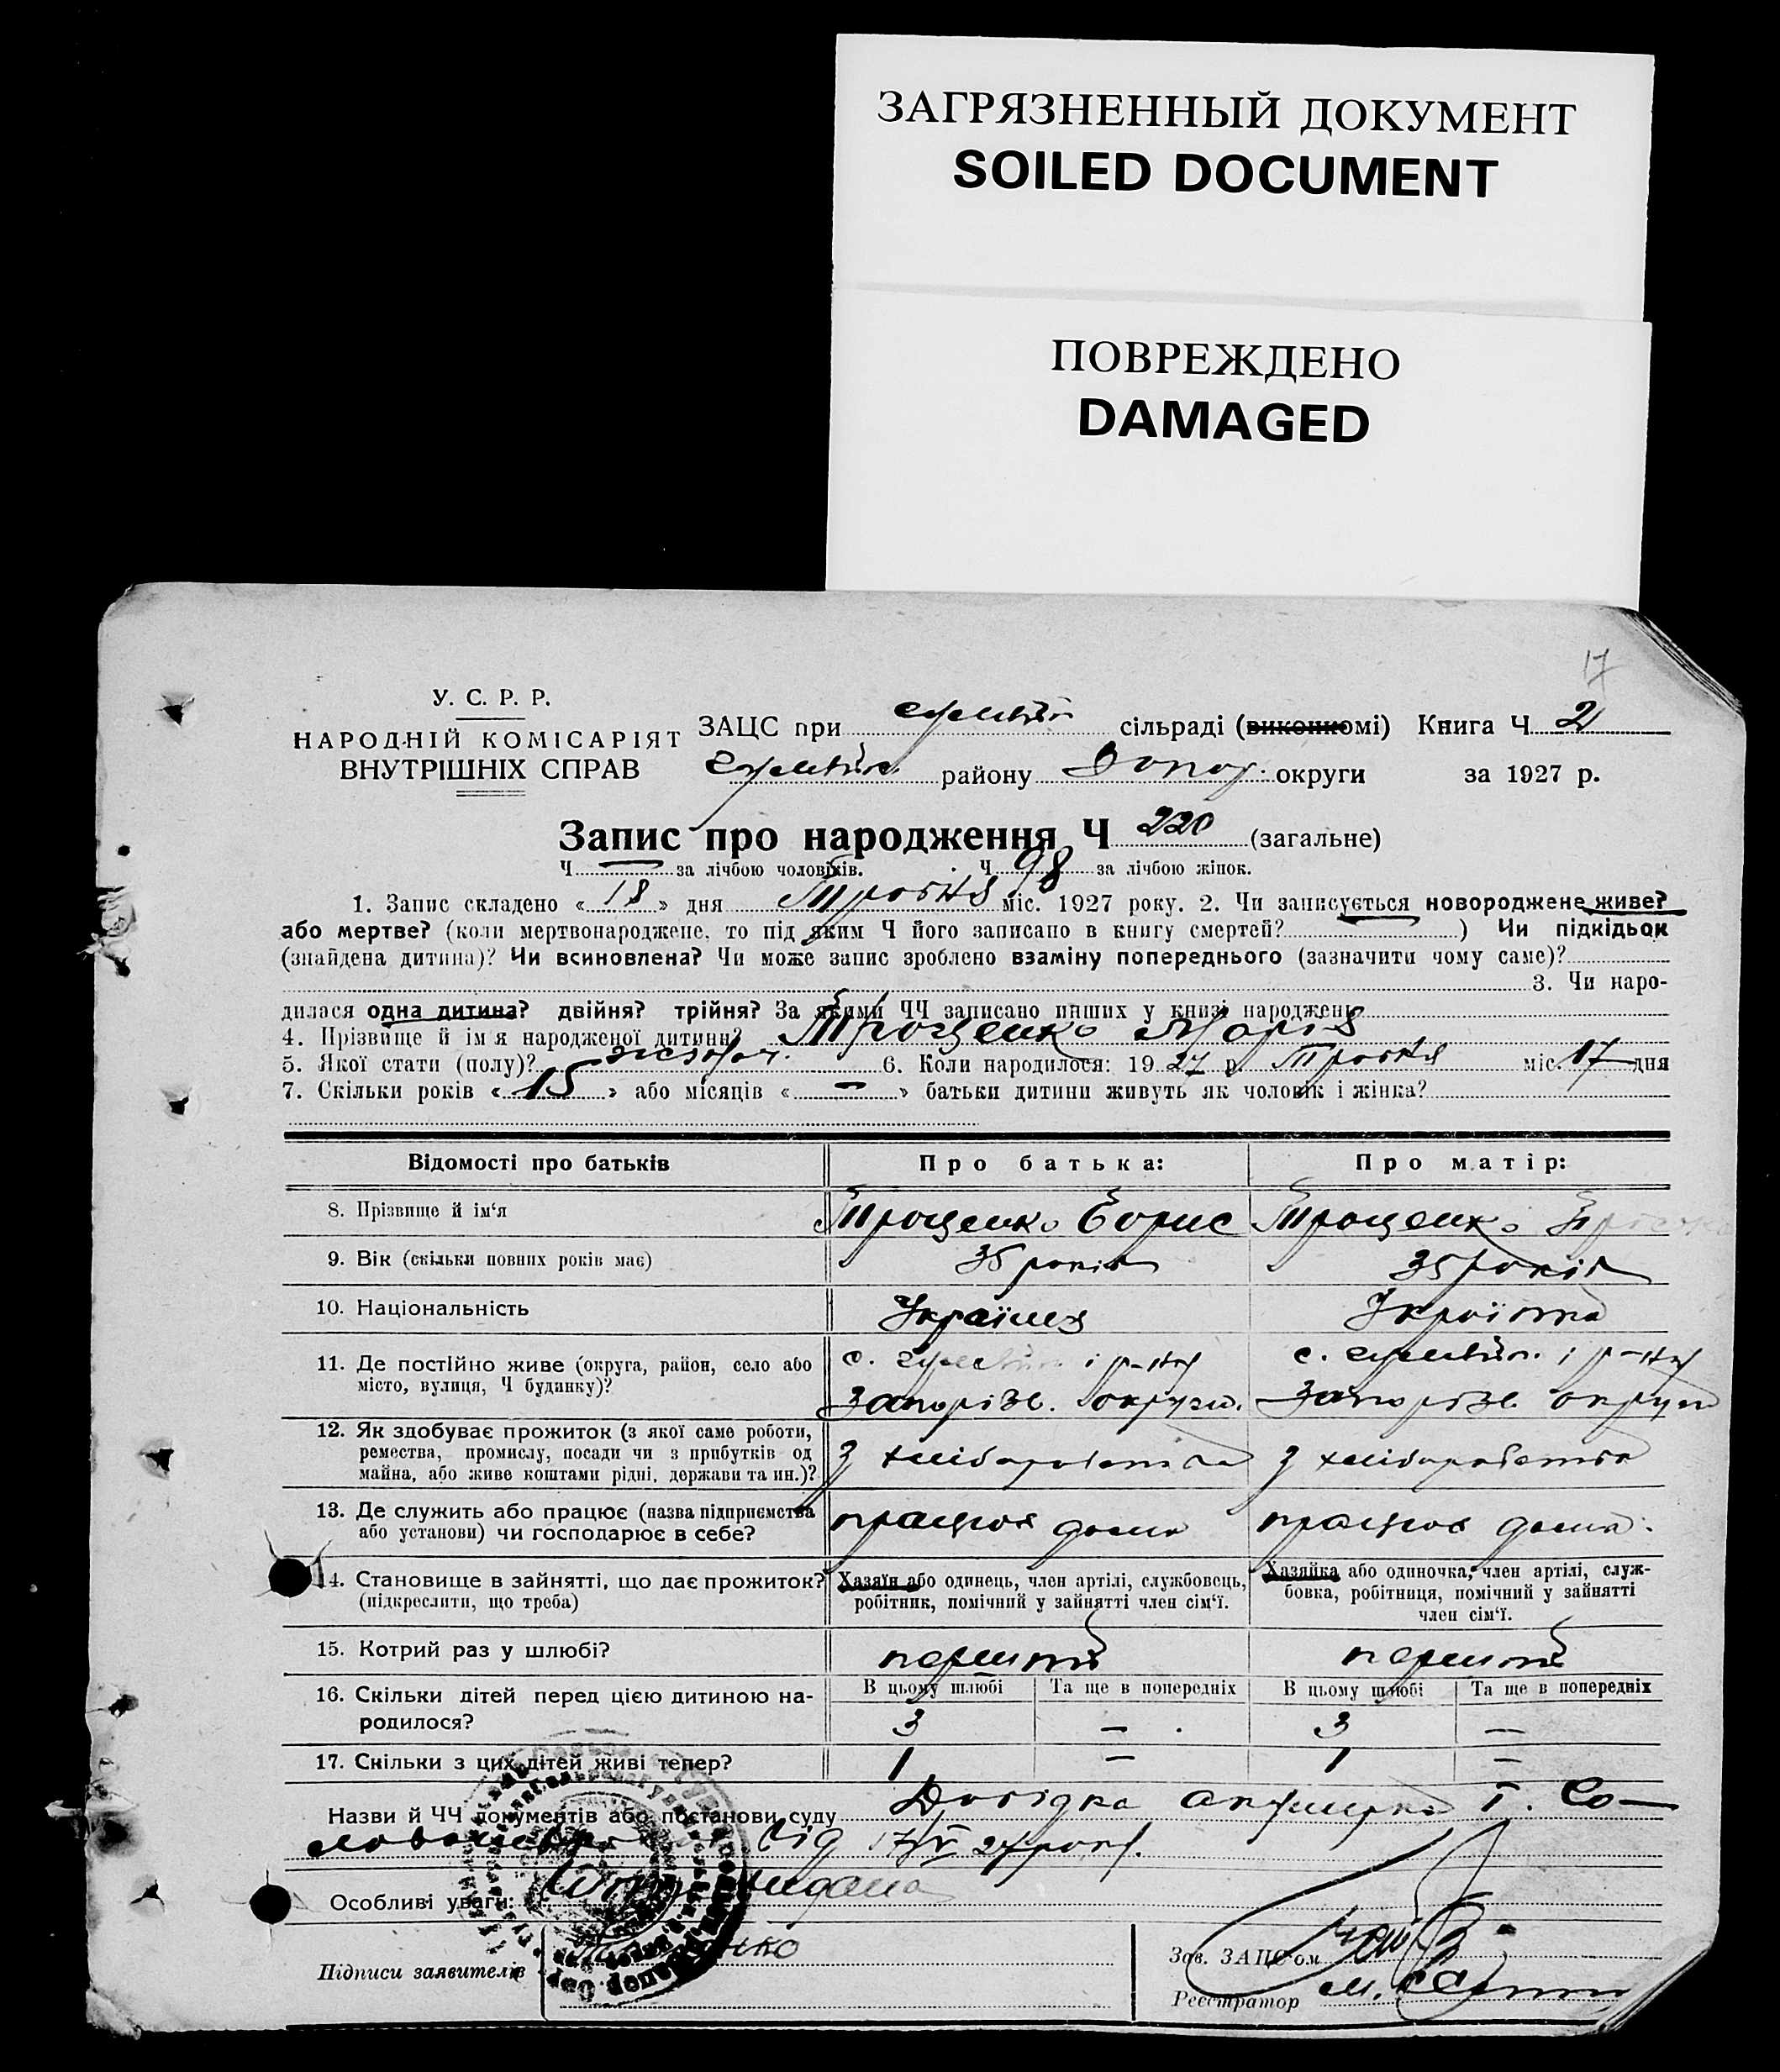 ЗАГРЯЗНЕННЫЙ ДОКУМЕНТ
SOILED DOCUMENT
ПОВРЕЖДЕНО
DAMAGED
17
У. С. Р. Р.
НАРОДНІЙ КОМІСАРІЯТ
ВНУТРІШНІХ СПРАВ
ЗАЦС при сільраді (виконкомі) Книга Ч 2
району Запоріз. округи за 1927 р.
Запис про народження Ч 220 (загальне)
Ч — за лічбою чоловіків. Ч 98 за лічбою жінок.
1. Запис складено « 18 » дня Травня міс. 1927 року. 2. Чи записується новороджене живе?
або мертве? (коли мертвонароджене, то під яким Ч його записано в книгу смертей? — ) Чи підкідьок
(знайдена дитина)? Чи всиновлена? Чи може запис зроблено взаміну попереднього (зазначити чому саме)?
3. Чи наро-
дилася одна дитина? двійня? трійня? За якими ЧЧ записано инших у книзі народжень
4. Прізвище й ім'я народженої дитини? Троценко Марія
5. Якої стати (полу)? жіноч. 6. Коли народилося: 1927 р. Травня міс. 17 дня
7. Скільки років « 15 » або місяців « — » батьки дитини живуть як чоловік і жінка?
Відомості про батьків Про батька: Про матір:
8. Прізвище й ім'я Троценко Борис Троценко
9. Вік (скільки повних років має) 35 років 35 років
10. Національність Українец Українка
11. Де постійно живе (округа, район, село або с. і р-ну с. і р-ну
місто, вулиця, Ч будинку)? Запорізь. округи. Запорізь округи
12. Як здобуває прожиток (з якої саме роботи,
ремества, промислу, посади чи з прибутків од
майна, або живе коштами рідні, держави та ин.)? З хліборобства З хліборобства
13. Де служить або працює (назва підприємства
або установи) чи господарює в себе? працює дома працює дома.
14. Становище в зайнятті, що дає прожиток? Хазяїн або одинець, член артілі, службовець, Хазяйка або одиночка, член артілі, служ-
(підкреслити, що треба) робітник, помічний у зайнятті член сім'ї. бовка, робітниця, помічний у зайнятті
член сім'ї.
15. Котрий раз у шлюбі? перший перший
16. Скільки дітей перед цією дитиною на- В цьому шлюбі Та ще в попередніх В цьому шлюбі Та ще в попередніх
родилося? 3 — 3 —
17. Скільки з цих дітей живі тепер? 1 — 1 —
Назви й ЧЧ документів або постанови суду Довідка акушерки Т. Со-
від 17/V 27 року.
Особливі уваги:
Підписи заявителів
Зав. ЗАЦС'ом
Реєстратор